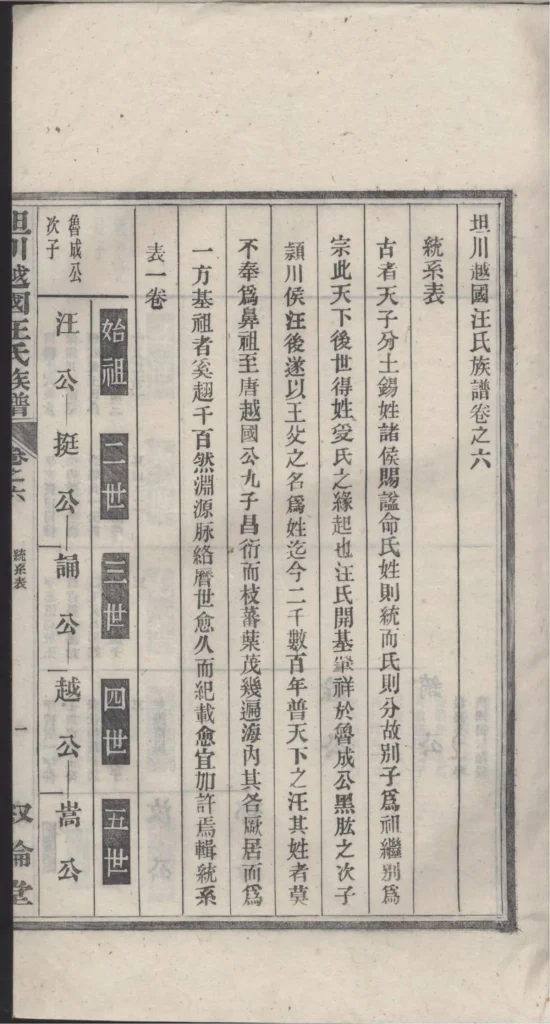 坦川越國汪氏族譜卷之六
統系表
古者天子分土錫姓諸侯賜諡命氏姓則統而氏則分故別子爲祖繼別爲
宗此天下後世得姓受氏之緣起也汪氏開基肇祥於魯成公黑肱之次子
潁川侯汪後遂以王父之名爲姓迄今二千數百年普天下之汪其姓者莫
不奉爲鼻祖至唐越國公九子昌衍而枝蕃葉茂幾遍海內其各厥居而爲
一方基祖者奚翅千百然淵源脉絡曆世愈久而紀載愈宜加詳焉輯統系
表一卷
始祖 二世 三世 四世 五世
魯成公
次子
汪公 挺公 誦公 越公 嵩公
坦川越國汪氏族譜 卷之六 統系表 一 叙倫堂